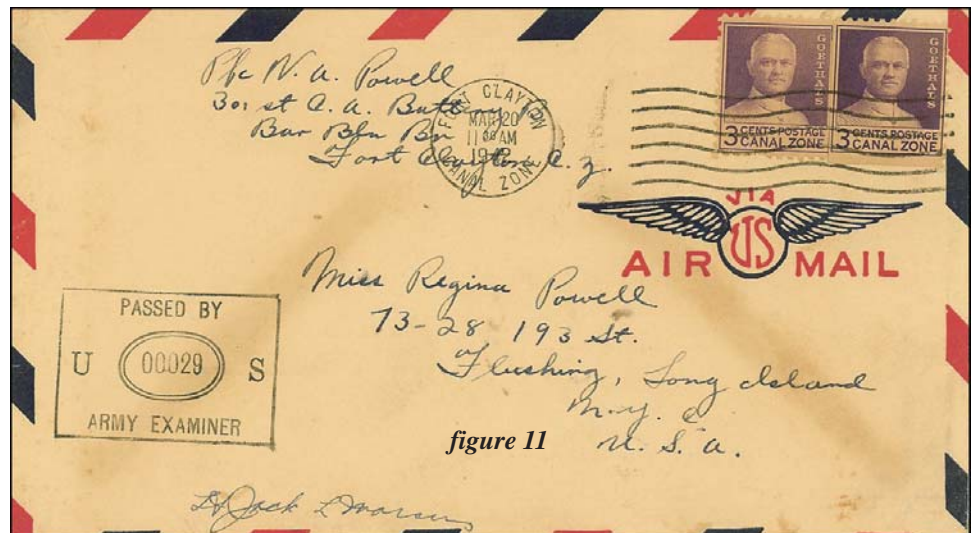 Pfc N. A. Powell
301st C. A. Battery
Bar Bln Bn
Fort Clayton C. Z.
FORT CLAYTON
MAR 20
11 AM
1942
CANAL ZONE
GOETHALS
3 CENTS POSTAGE
CANAL ZONE
GOETHALS
3 CENTS POSTAGE
CANAL ZONE
VIA
US
AIR MAIL
Miss Regina Powell
73-28 193 St.
Flushing, Long Island
N.Y. C.
U. S. A.
PASSED BY
U 00029 S
ARMY EXAMINER
figure 11
Jack L